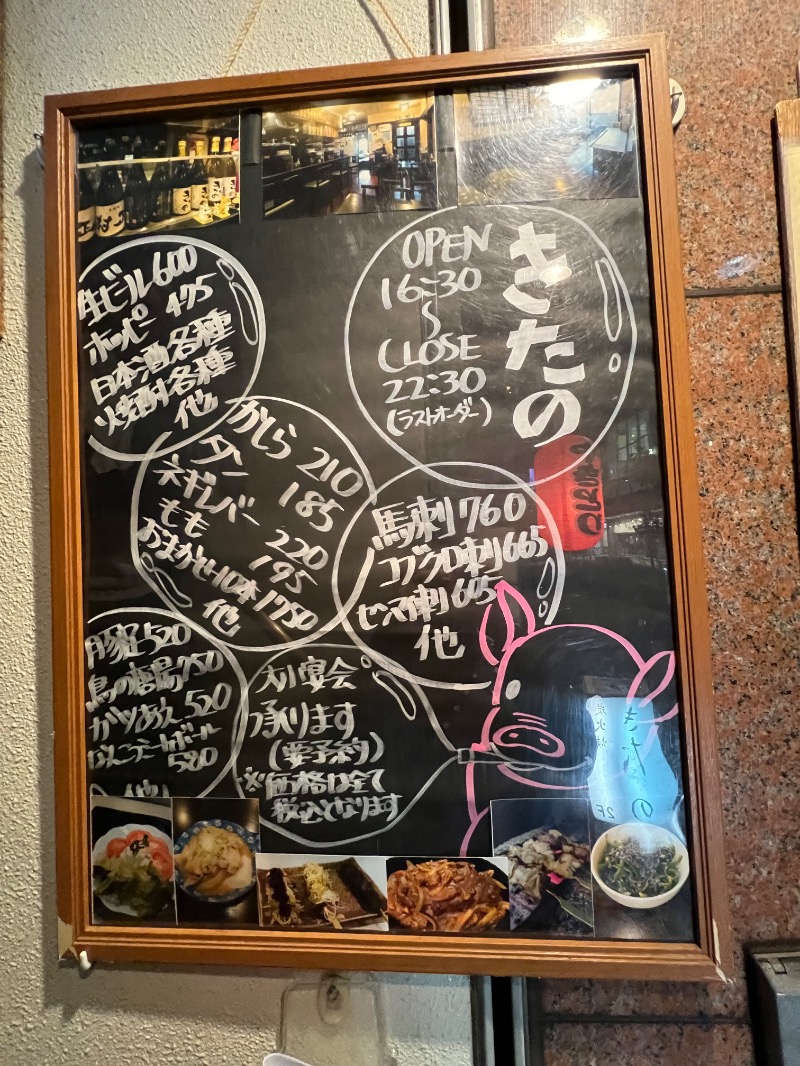 きたの
OPEN
16:30
〜
CLOSE
22:30
(ラストオーダー)
生ビール600
ホッピー 475
日本酒各種
焼酎各種
他
かしら 210
タン 185
ネギレバー 220
もも 195
おまかせ10本1750
他
馬刺760
コブクロ刺665
センマイ刺605
他
豚足520
鳥の唐揚750
ガツあえ520
なんこつミートボール
580
他
大小宴会
承ります
(要予約)
※価格は全て
税込となります
きたの
2F